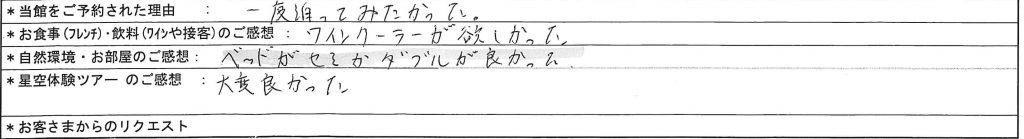 ＊当館をご予約された理由 ： 一度泊ってみたかった。
＊お食事(フレンチ)・飲料(ワインや接客)のご感想 ： ワインクーラーが欲しかった
＊自然環境・お部屋のご感想 ： ベッドがセミかダブルが良かった
＊星空体験ツアー のご感想 ： 大変良かった
＊お客さまからのリクエスト